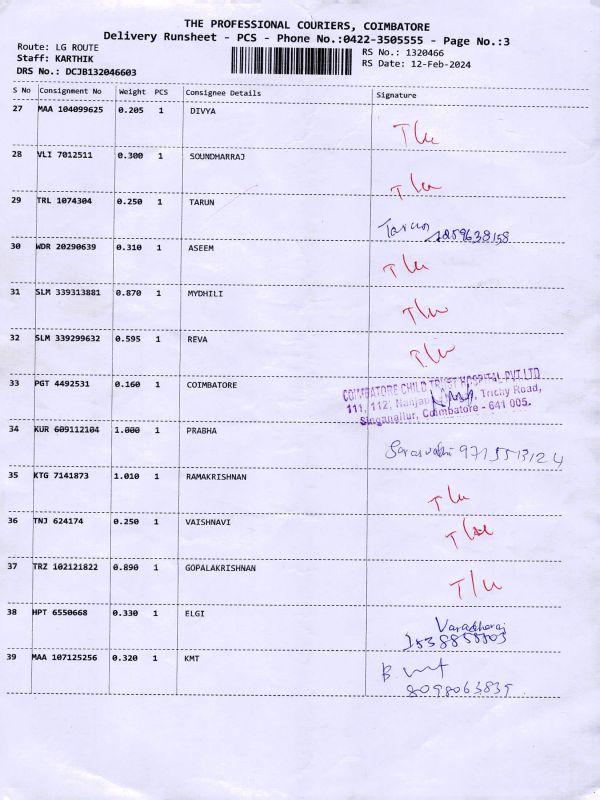 THE PROFESSIONAL COURIERS, COIMBATORE
Delivery Runsheet - PCS - Phone No.:0422-3505555 - Page No.:3
Route: LG ROUTE
RS No.: 1320466
Staff: KARTHIK
RS Date: 12-Feb-2024
DRS No.: DCJB132046603
S No Consignment No Weight PCS Consignee Details Signature
27 MAA 104099625 0.205 1 DIVYA
28 VLI 7012511 0.300 1 SOUNDHARRAJ
29 TRL 1074304 0.250 1 TARUN
Tarun
30 WDR 20290639 0.310 1 ASEEM
31 SLM 339313881 0.870 1 MYDHILI
32 SLM 339299632 0.595 1 REVA
33 PGT 4492531 0.160 1 COIMBATORE
COIMBATORE CHILD TRUST HOSPITAL PVT.LTD
111, 112, Trichy Road,
Singanallur, Coimbatore - 641 005.
34 KUR 609112104 1.000 1 PRABHA
35 KTG 7141873 1.010 1 RAMAKRISHNAN
36 TNJ 624174 0.250 1 VAISHNAVI
37 TRZ 102121822 0.890 1 GOPALAKRISHNAN
38 HPT 6550668 0.330 1 ELGI
Varadharaj
39 MAA 107125256 0.320 1 KMT
8098063839